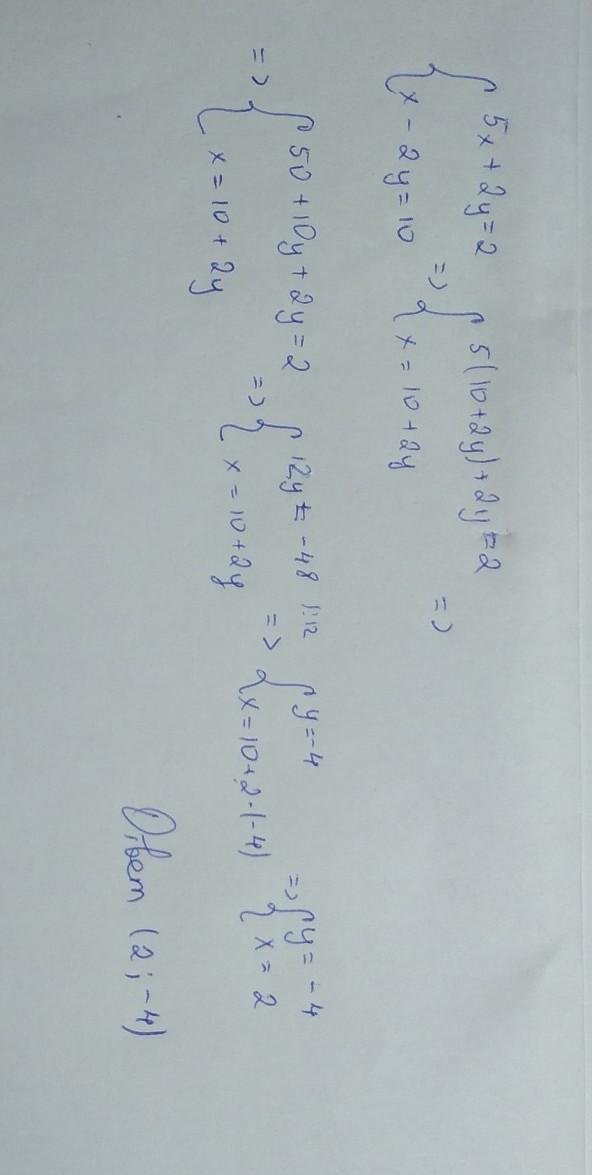 { 5x + 2y = 2
{ x - 2y = 10 => { 5(10+2y)+2y=2
{ x = 10 + 2y =>
=> { 50 + 10y + 2y = 2
{ x = 10 + 2y => { 12y = -48 |:12
{ x = 10 + 2y => { y = -4
{ x = 10 + 2·(-4) => { y = -4
{ x = 2
Ответ (2; -4)